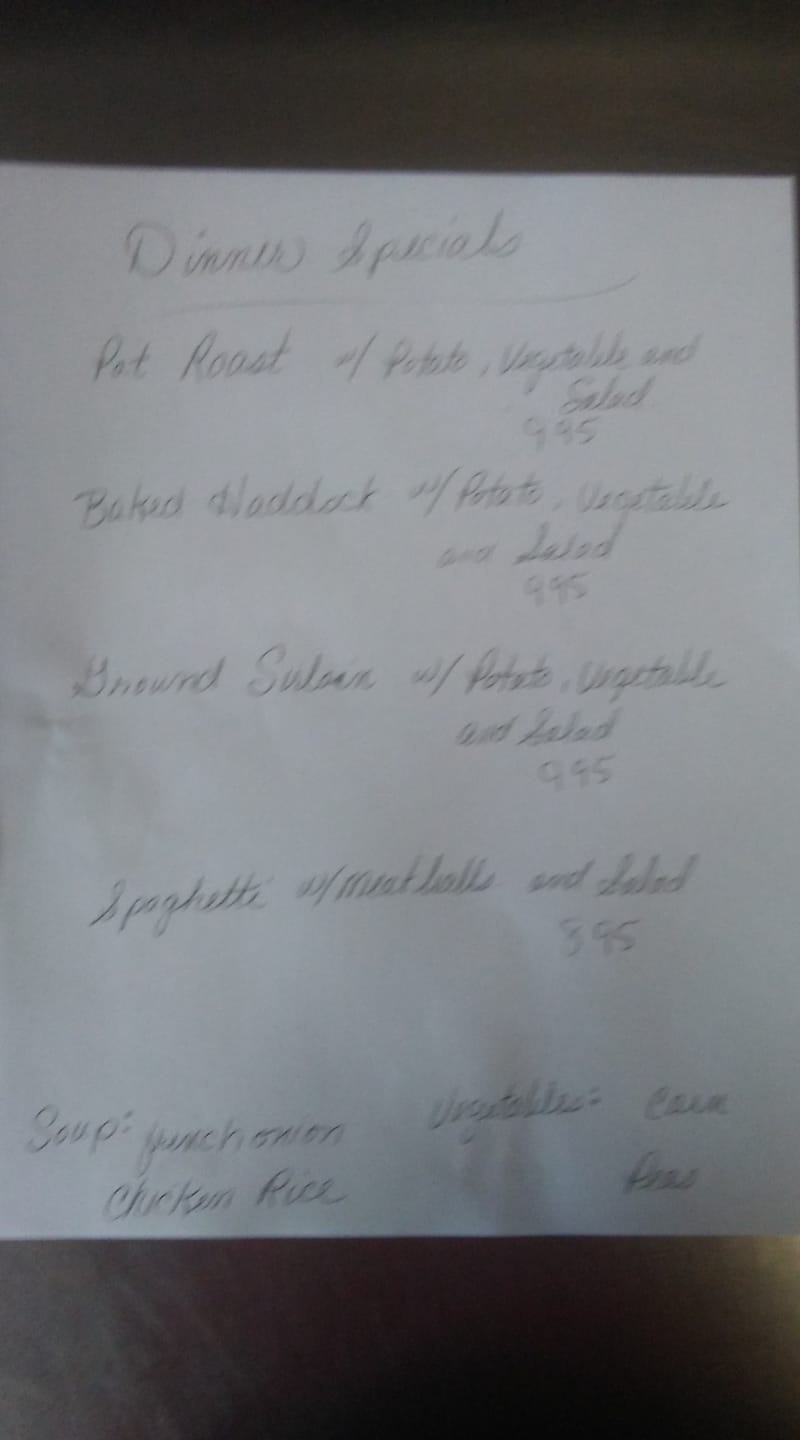 Dinner Specials
Pot Roast w/ Potato, Vegetable and
Salad
9.95
Baked Haddock w/ Potato, Vegetable
and Salad
9.95
Ground Sirloin w/ Potato, Vegetable
and Salad
9.95
Spaghetti w/ Meatballs and Salad
8.95
Soup: french onion
Chicken Rice
Vegetables: Corn
Peas